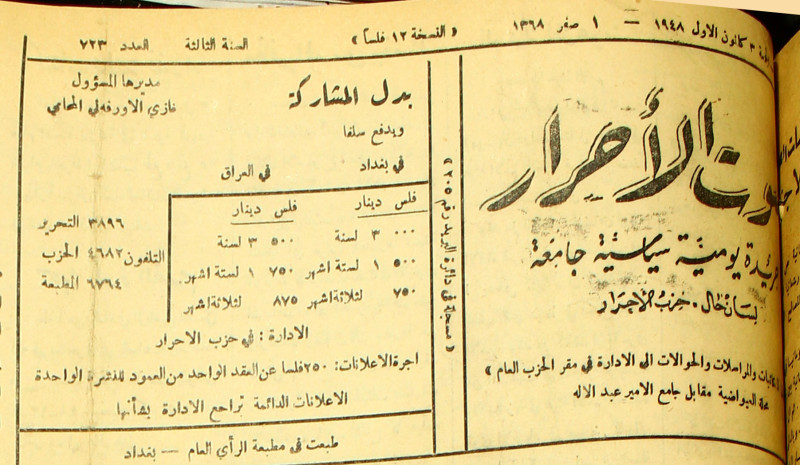 ٣ كانون الاول ١٩٤٨ — ١ صفر ١٣٦٨ « النسخة ١٢ فلسا » السنة الثالثة العدد ٧٢٣
صوت الأحرار
جريدة يومية سياسية جامعة
لسان حال - حزب الأحرار
والمراسلات والحوالات الى الادارة في مقر الحزب العام »
محلة العيواضية مقابل جامع الامير عبد الاله
« مسجلة في دائرة البريد رقم ٢٠٥ »
بدل المشاركة
ويدفع سلفا
في بغداد في العراق
فلس دينار فلس دينار
٠٠٠ ٣ لسنة ٥٠٠ ٣ لسنة
٥٠٠ ١ لستة اشهر ٧٥٠ ١ لستة اشهر
٧٥٠ لثلاثة اشهر ٨٧٥ لثلاثة اشهر
مديرها المسؤول
غازي الاورفه لي المحامي
التلفون
٣٨٩٦ التحرير
٤٦٨٢ الحزب
٦٧٦٤ المطبعة
الادارة : في حزب الاحرار
اجرة الاعلانات : ٢٥٠ فلسا عن العقد الواحد من العمود للنشرة الواحدة
الاعلانات الدائمة تراجع الادارة بشأنها
طبعت في مطبعة الرأي العام — بغداد